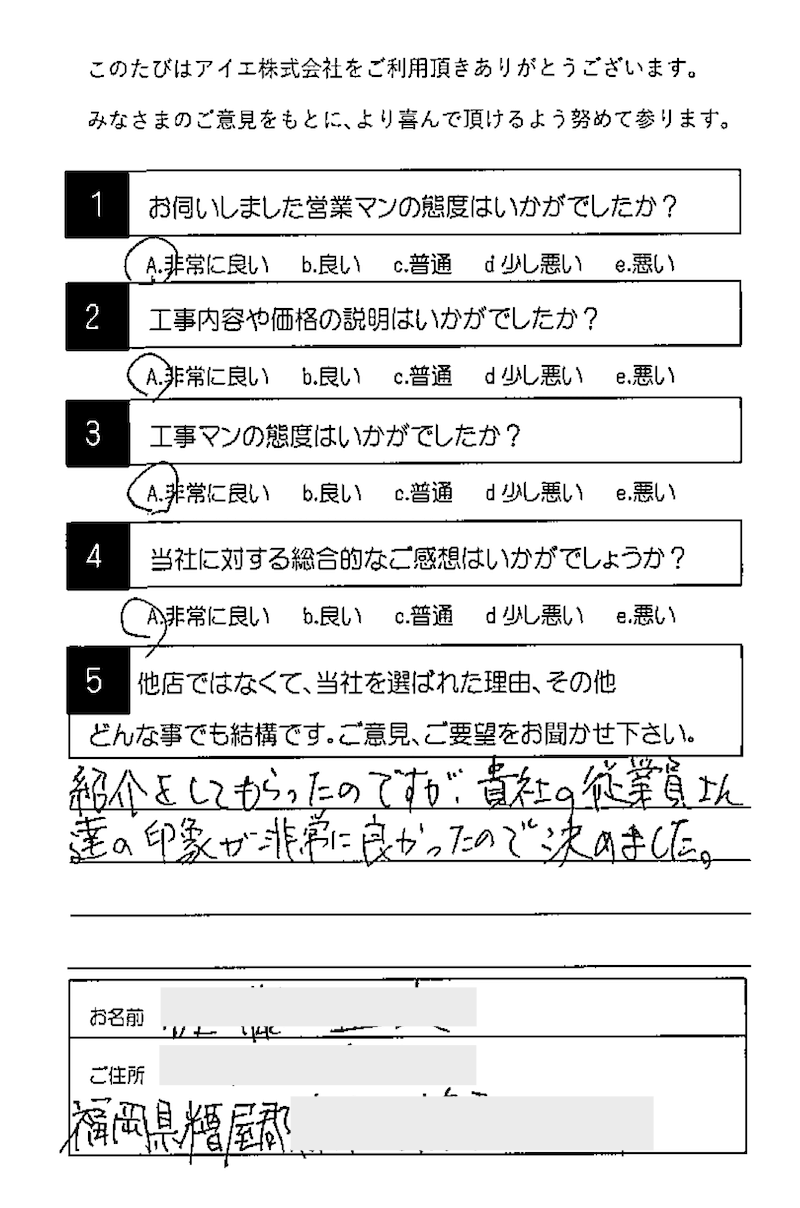 このたびはアイエ株式会社をご利用頂きありがとうございます。
みなさまのご意見をもとに、より喜んで頂けるよう努めて参ります。
1 お伺いしました営業マンの態度はいかがでしたか?
A.非常に良い b.良い c.普通 d 少し悪い e.悪い
2 工事内容や価格の説明はいかがでしたか?
A.非常に良い b.良い c.普通 d 少し悪い e.悪い
3 工事マンの態度はいかがでしたか?
A.非常に良い b.良い c.普通 d 少し悪い e.悪い
4 当社に対する総合的なご感想はいかがでしょうか?
A.非常に良い b.良い c.普通 d 少し悪い e.悪い
5 他店ではなくて、当社を選ばれた理由、その他
どんな事でも結構です。ご意見、ご要望をお聞かせ下さい。
紹介をしてもらったのですが、貴社の従業員さん
達の印象が非常に良かったので決めました。
お名前
ご住所
福岡県糟屋郡